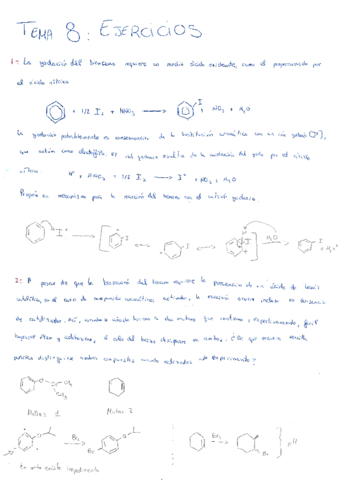 TEMA 8: EJERCICIOS
1.- La yodación del benceno requiere un medio ácido oxidante, como el proporcionado por
el ácido nítrico
+ 1/2 I2 + HNO3 → I + NO2 + H2O
La yodación probablemente es consecuencia de la sustitución aromática con un ión yodonio (I+),
que actúa como electrófilo. El ión yodonio resulta de la oxidación del yodo por el ácido
nítrico
H+ + HNO3 + 1/2 I2 → I+ + NO2 + H2O
Propón un mecanismo para la reacción del benceno con el catión yodonio.
I+ → I ↔ I ↔ I H2O → I + H3O+
2.- A pesar de que la bromación del benceno requiere la presencia de un ácido de Lewis
catalítico, en el caso de compuestos aromáticos activados, la reacción ocurre incluso en ausencia
de catalizador. Así, cuando se añade bromo a dos matraces que contienen, respectivamente, fenil
isopropil éter y ciclohexeno, el color del bromo desaparece en ambos. ¿De qué manera
distinguiría ambos compuestos
CH3
CH3
Matraz 1 Matraz 2
Br2 → Br
Br2 → Br
Br
en orto existe impedimento